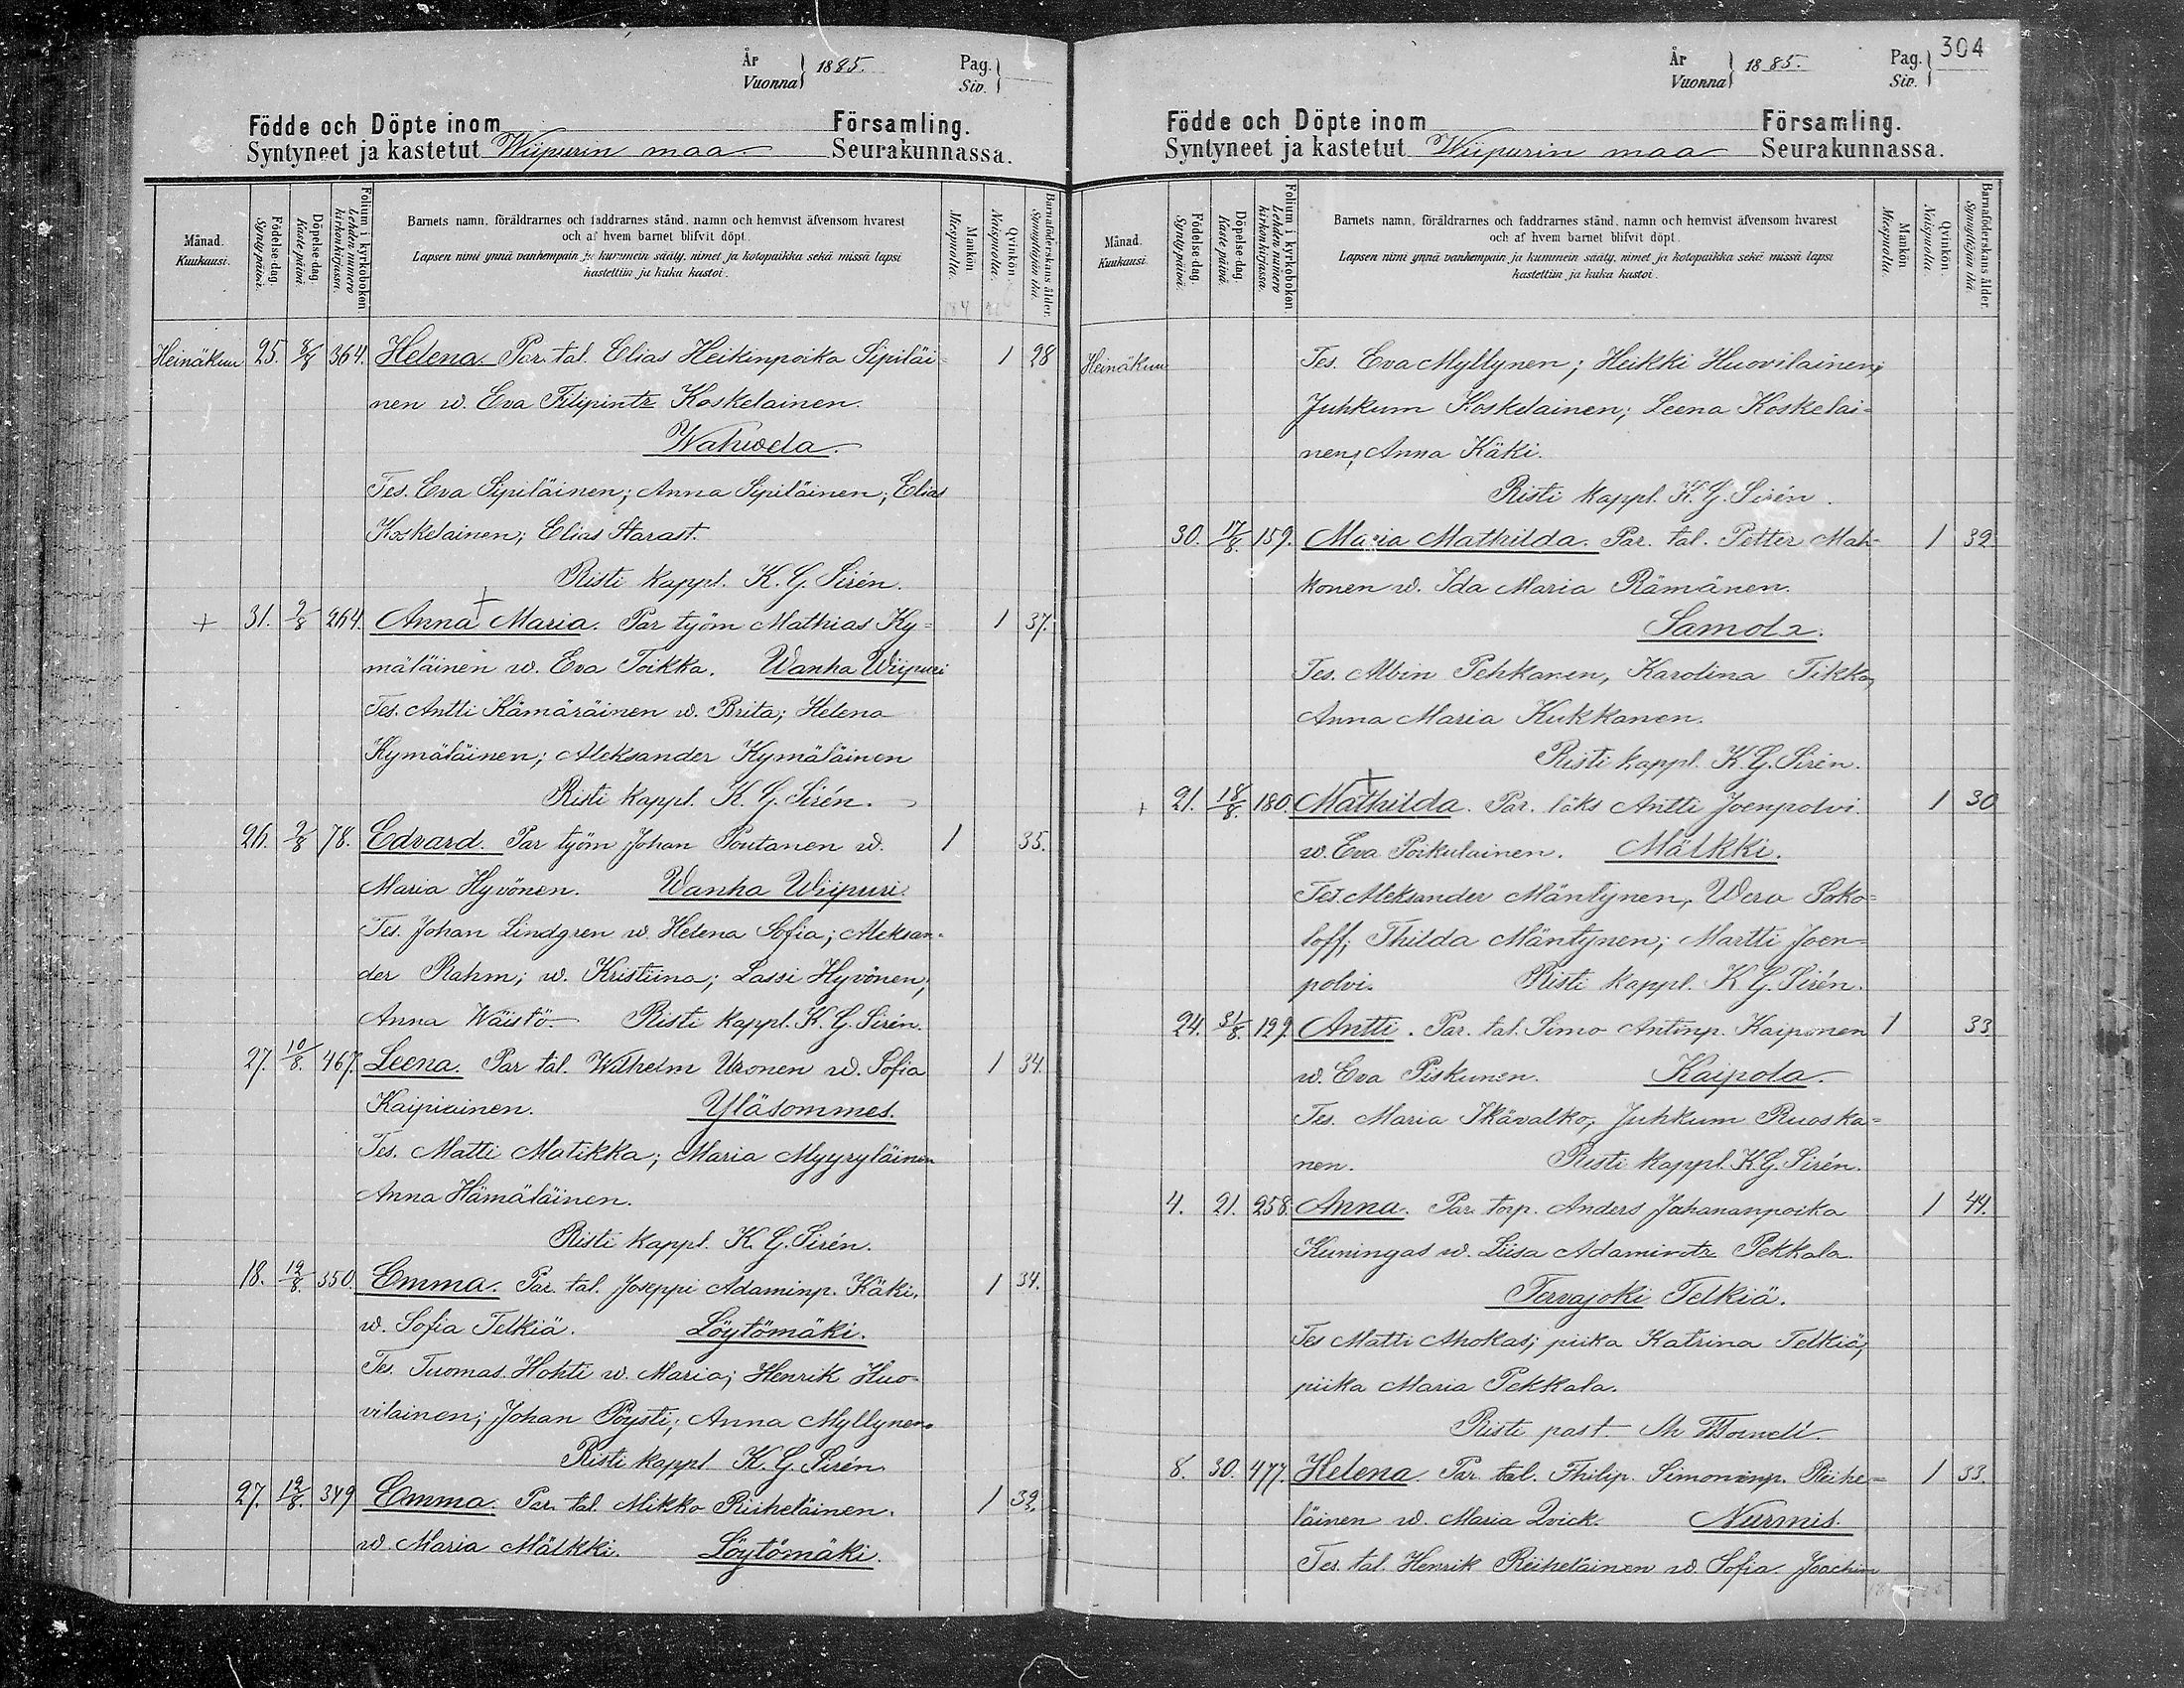 År
Vuonna } 1885.
Pag.
Siv. }
Födde och Döpte inom Församling.
Syntyneet ja kastetut Wiipurin maa Seurakunnassa.
Månad. Kuukausi.
Födelse-dag. Syntypäivä.
Döpelse-dag. Kaste päivä.
Folium i kyrkobokon. Lehden numero kirkonkirjassa.
Barnets namn, föräldrarnes och faddrarnes stånd, namn och hemvist äfvensom hvarest
och af hvem barnet blifvit döpt.
Lapsen nimi ynnä vanhempain ja kummein sääty, nimet ja kotopaikka sekä missä lapsi
kastettiin ja kuka kastoi.
Mankön. Miespuolia.
Qvinkön. Naispuolia.
Barnaföderskans ålder. Synnyttäjän ikä.
Heinäkuu 25. 8/8 364. Helena. Par. tal. Elias Heikinpoika Sipiläi- 1 28
nen w. Eva Filipintr Koskelainen.
Wahwela.
Tes. Eva Sipiläinen; Anna Sipiläinen; Elias
Koskelainen; Elias Starast.
Risti kappl. K. G. Sirén.
+ 31. 9/8 264. Anna Maria. Par työm Mathias Ky= 1 37.
mäläinen w. Eva Toikka. Wanha Wiipuri
Tes. Antti Kämäräinen w. Brita; Helena
Kymäläinen; Aleksander Kymäläinen
Risti kappl. K. G. Sirén.
26. 9/8 78. Edvard. Par työm Johan Poutanen w. 1 35.
Maria Hyvönen. Wanha Wiipuri.
Tes. Johan Lindgren w. Helena Sofia; Aleksan-
der Rahm; w. Kristiina; Lassi Hyvönen;
Anna Wäistö. Risti kappl. K. G. Sirén.
27. 10/8. 467. Leena. Par tal. Wilhelm Uronen w. Sofia 1 34.
Kaipiainen. Yläsommes.
Tes. Matti Matikka; Maria Myyryläinen
Anna Hämäläinen.
Risti kappl. K. G. Sirén.
18. 12/8. 350. Emma. Par. tal. Joseppi Adaminp. Käki. 1 34.
w. Sofia Telkiä. Löytömäki.
Tes. Tuomas Hohti w. Maria; Henrik Huo-
vilainen; Johan Pöysti; Anna Myllynen.
Risti kappl K. G. Sirén
27. 12/8. 349 Emma. Par. tal. Mikko Riiheläinen. 1 32.
w Maria Mälkki. Löytömäki.
År
Vuonna } 1885.
Pag.
Siv. } 304
Födde och Döpte inom Församling.
Syntyneet ja kastetut Wiipurin maa Seurakunnassa.
Månad. Kuukausi.
Födelse-dag. Syntypäivä.
Döpelse-dag. Kaste päivä.
Folium i kyrkobokon. Lehden numero kirkonkirjassa.
Barnets namn, föräldrarnes och faddrarnes stånd, namn och hemvist äfvensom hvarest
och af hvem barnet blifvit döpt.
Lapsen nimi ynnä vanhempain ja kummein sääty, nimet ja kotopaikka sekä missä lapsi
kastettiin ja kuka kastoi.
Mankön. Miespuolia.
Qvinkön. Naispuolia.
Barnaföderskans ålder. Synnyttäjän ikä.
Heinäkuu Tes. Eva Myllynen; Heikki Huovilainen;
Juhkum Koskelainen; Leena Koskelai=
nen; Anna Käki.
Risti kappl. K. G. Sirén.
30. 17/8. 159. Maria Mathilda. Par. tal. Petter Mah- 1 32
konen w. Ida Maria Rämänen.
Samola.
Tes. Albin Pehkanen, Karolina Tikka,
Anna Maria Kukkanen.
Risti kappl. K. G. Sirén.
+ 21. 18/8. 180. Mathilda. Par. läks Antti Joenpolvi. 1 30
w. Eva Poikulainen. Mälkki.
Tes. Aleksander Mäntynen, Wera Soko=
loff; Thilda Mäntynen; Martti Joen=
polvi. Risti kappl. K G. Sirén.
24. 31/8. 129. Antti. Par. tal. Simo Antinp. Kaiponen 1 33.
w. Eva Piskunen. Kaipola.
Tes. Maria Ikävalko; Juhkum Ruoska=
nen. Risti kappl. K. G. Sirén.
4. 21. 258. Anna. Par. torp. Anders Juhananpoika 1 44.
Kuningas w. Liisa Adamintr Pekkala.
Tervajoki Telkiä.
Tes Matti Ahokas; piika Katrina Telkiä;
piika Maria Pekkala.
Risti past.
8. 30. 477. Helena. Par. tal. Philip. Simoninp. Riihe= 1 33.
läinen w. Maria Qvick. Nurmis.
Tes. tal. Henrik Riiheläinen w. Sofia. Joachim